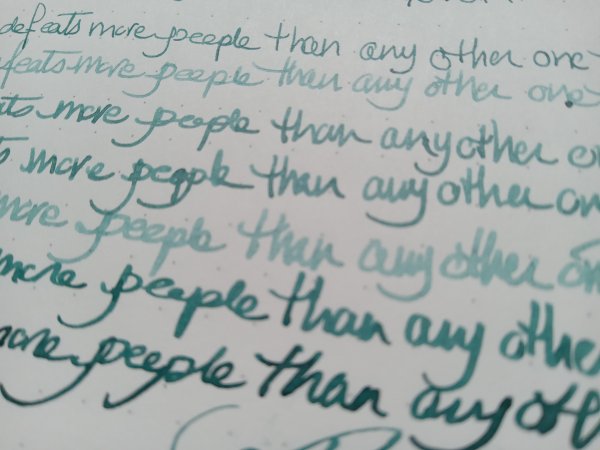 defeats more people than any other one
feats more people than any other one
ats more people than any other o
more people than any other on
more people than any other on
more people than any othe
more people than any oth